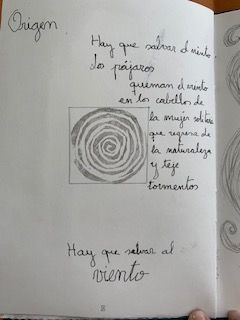 Origen
Hay que salvar el viento
Los pájaros
queman el viento
en los cabellos de
la mujer solitaria
que regresa de
la naturaleza
y teje
tormentos
Hay que salvar al
viento